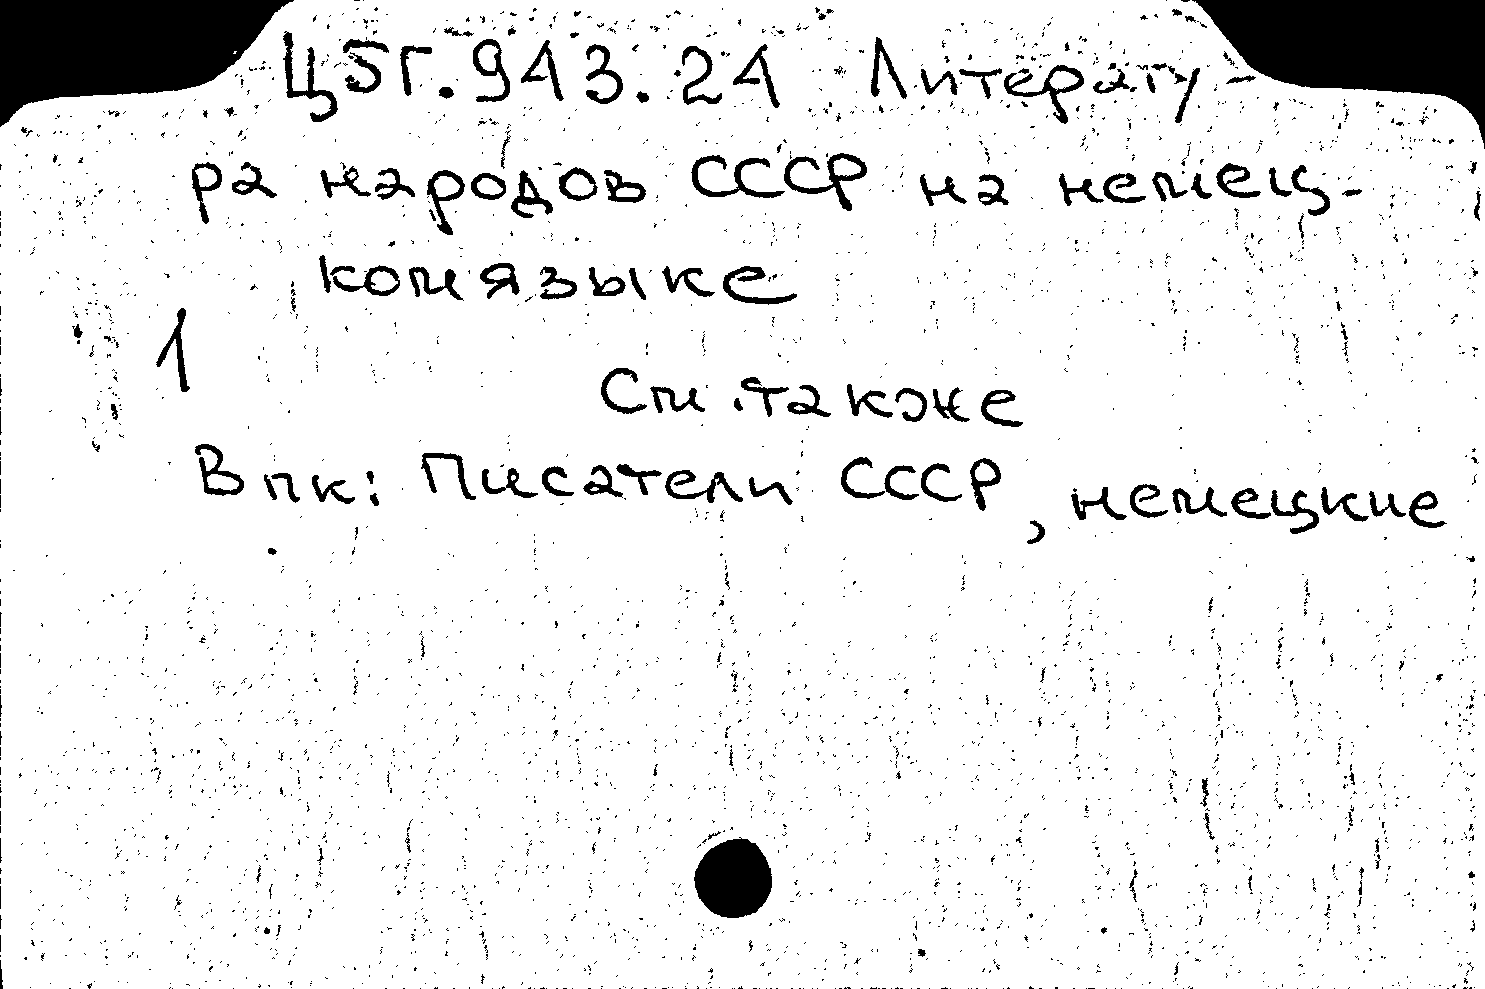 Ц5Г.943.24 Литерату-
ра народов СССР на немец-
ком языке
1
См. также
В пк: Писатели СССР, немецкие